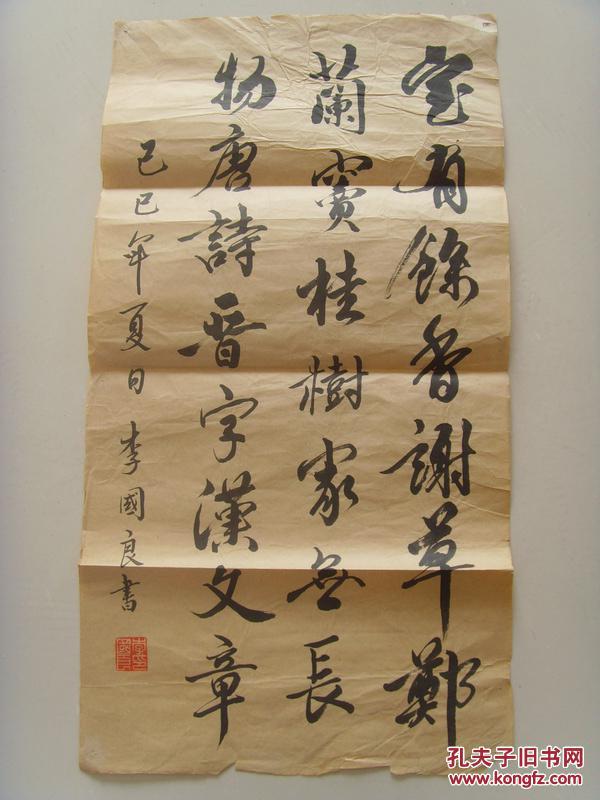 室有餘香謝草鄭
蘭竇桂樹家無長
物唐詩晋字漢文章
己巳年夏日李國良書
孔夫子旧书网
www.kongfz.com